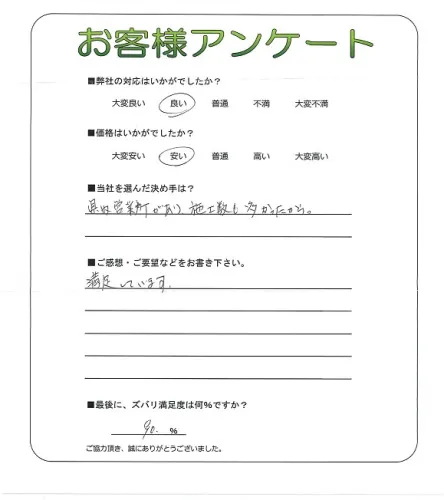 お客様アンケート
■弊社の対応はいかがでしたか?
大変良い 良い 普通 不満 大変不満
■価格はいかがでしたか?
大変安い 安い 普通 高い 大変高い
■当社を選んだ決め手は?
県内営業所があり、施工数も多かったから。
■ご感想・ご要望などをお書き下さい。
満足しています。
■最後に、ズバリ満足度は何%ですか?
90. %
ご協力頂き、誠にありがとうございました。